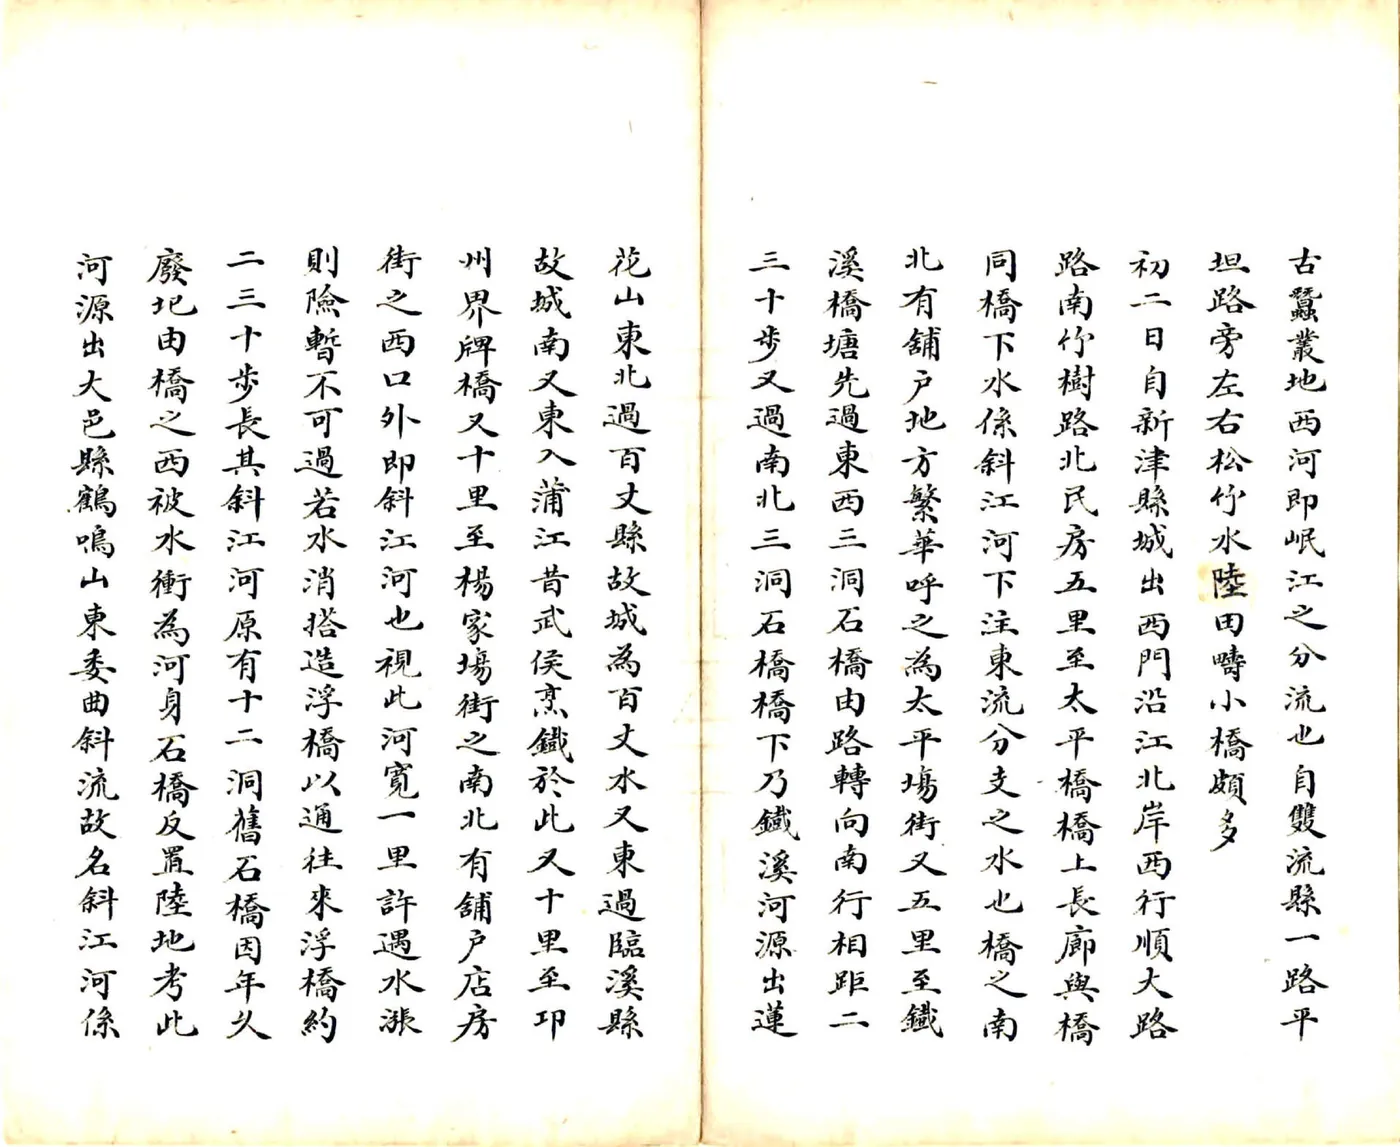 古蠶叢地西河即岷江之分流也自雙流縣一路平
坦路旁左右松竹水陸田疇小橋頗多
初二日自新津縣城出西門沿江北岸西行順大路
路南竹樹路北民房五里至太平橋橋上長廊與橋
同橋下水係斜江河下注東流分支之水也橋之南
北有舖户地方繁華呼之為太平塲街又五里至鐵
溪橋塘先過東西三洞石橋由路轉向南行相距二
三十步又過南北三洞石橋橋下乃鐵溪河源出蓮
花山東北過百丈縣故城為百丈水又東過臨溪縣
故城南又東入蒲江昔武侯烹鐵於此又十里至邛
州界牌橋又十里至楊家塲街之南北有舖户店房
街之西口外即斜江河也視此河寬一里許遇水漲
則險暫不可過若水消搭造浮橋以通往來浮橋約
二三十步長其斜江河原有十二洞舊石橋因年久
廢圮由橋之西被水衝為河身石橋反置陸地考此
河源出大邑縣鶴鳴山東委曲斜流故名斜江河係